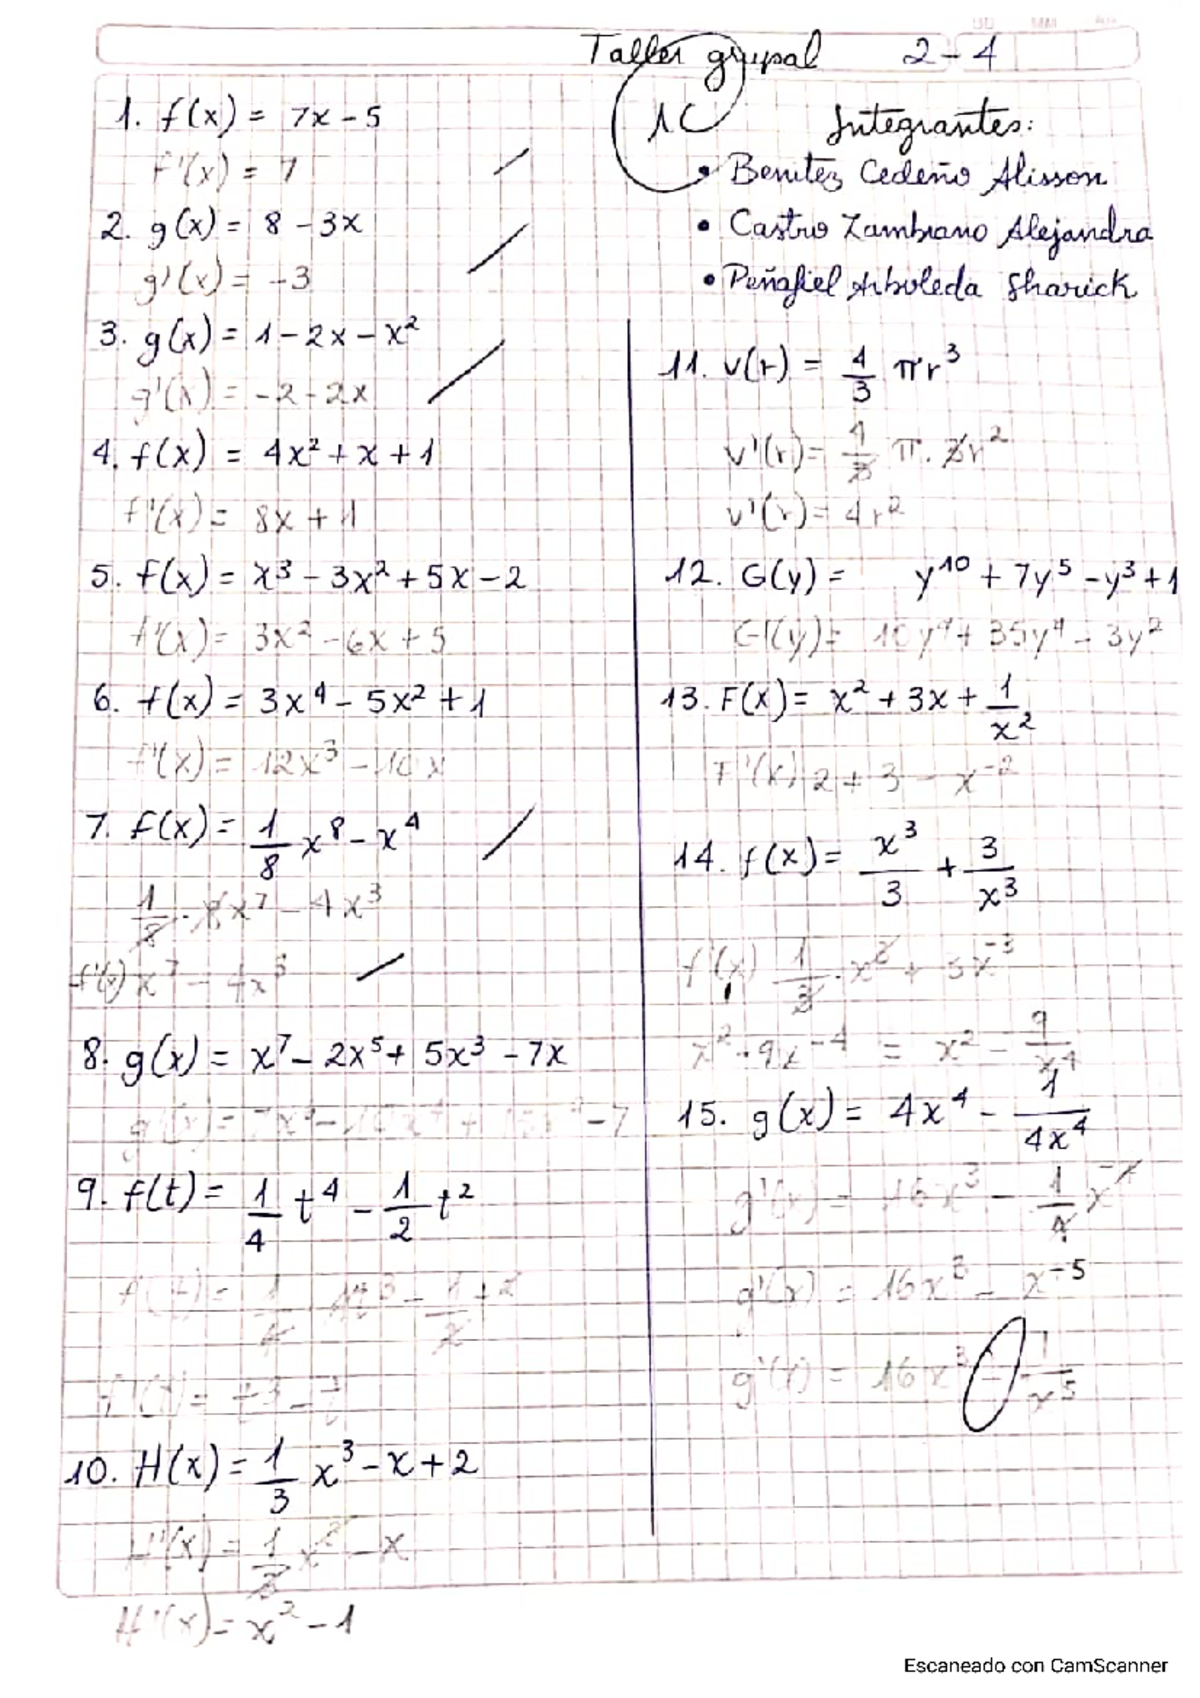 Taller grupal 2-4
1C
Integrantes:
• Benitez Cedeño Alisson
• Castro Zambrano Alejandra
• Peñafiel Arboleda Sharick
1. f(x) = 7x - 5
f'(x) = 7
2. g(x) = 8 - 3x
g'(x) = -3
3. g(x) = 1 - 2x - x²
g'(x) = -2 - 2x
4. f(x) = 4x² + x + 1
f'(x) = 8x + 1
5. f(x) = x³ - 3x² + 5x - 2
f'(x) = 3x² - 6x + 5
6. f(x) = 3x⁴ - 5x² + 1
f'(x) = 12x³ - 10x
7. f(x) = 1/8 x⁸ - x⁴
1/8 · 8x⁷ - 4x³
f'(x) x⁷ - 4x³
8. g(x) = x⁷ - 2x⁵ + 5x³ - 7x
9. f(t) = 1/4 t⁴ - 1/2 t²
10. H(x) = 1/3 x³ - x + 2
H'(x) = 1/3 x² - x
H'(x) = x² - 1
11. v(r) = 4/3 πr³
v'(r) = 4/3 π. 3r²
v'(r) = 4r²
12. G(y) = y¹⁰ + 7y⁵ - y³ + 1
G'(y) = 10y⁹ + 35y⁴ - 3y²
13. F(x) = x² + 3x + 1/x²
F'(x) 2 + 3 - x⁻²
14. f(x) = x³/3 + 3/x³
x² - 9x⁻⁴ = x² - 9/x⁴
15. g(x) = 4x⁴ - 1/4x⁴
g'(x) = 16x³ - x⁻⁵
g'(x) = 16x³ - 1/x⁵
Escaneado con CamScanner